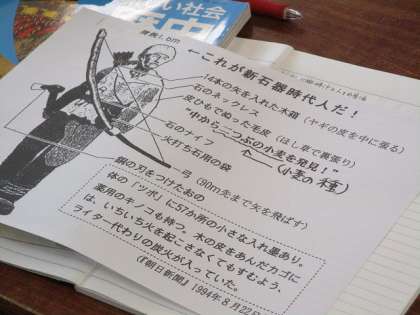 い社会
身長1.6m
←これが新石器時代人だ！
14本の矢を入れた木筒（ヤギの皮を中に張る）
石のネックレス
皮ひもでぬった毛皮（ほし草で裏張り）
"中から二つぶの小麦を発見！"
（小麦の種）
石のナイフ
火打ち石用の袋
弓（90m先まで矢を飛ばす）
銅の刃をつけたおの
体の「ツボ」に57か所の小さな入れ墨あり。
薬用のキノコも持つ。木の皮をあんだカゴに
は、いちいち火を起こさなくてもすむよう、
ライター代わりの炭火が入っていた。
（『朝日新聞』1994年8月22日